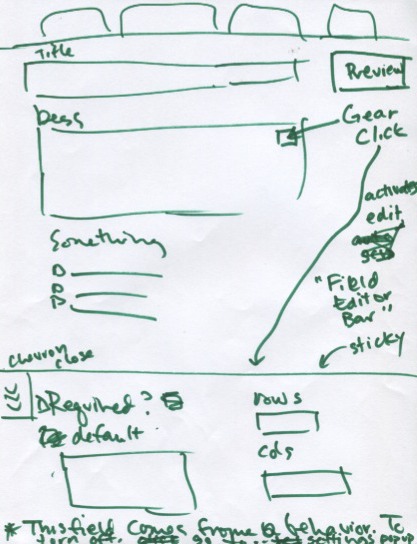 Title
Preview
Desc
Gear
Click
activates
edit
"Field
Editor
Bar"
sticky
Something
chevron
close
Required?
default
rows
cols
* This field comes from a behavior. To
turn off, go to settings popup